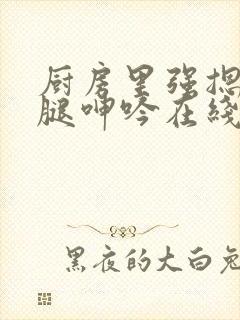 厨房里强摁
腿呻吟在线
黑夜的大白兔